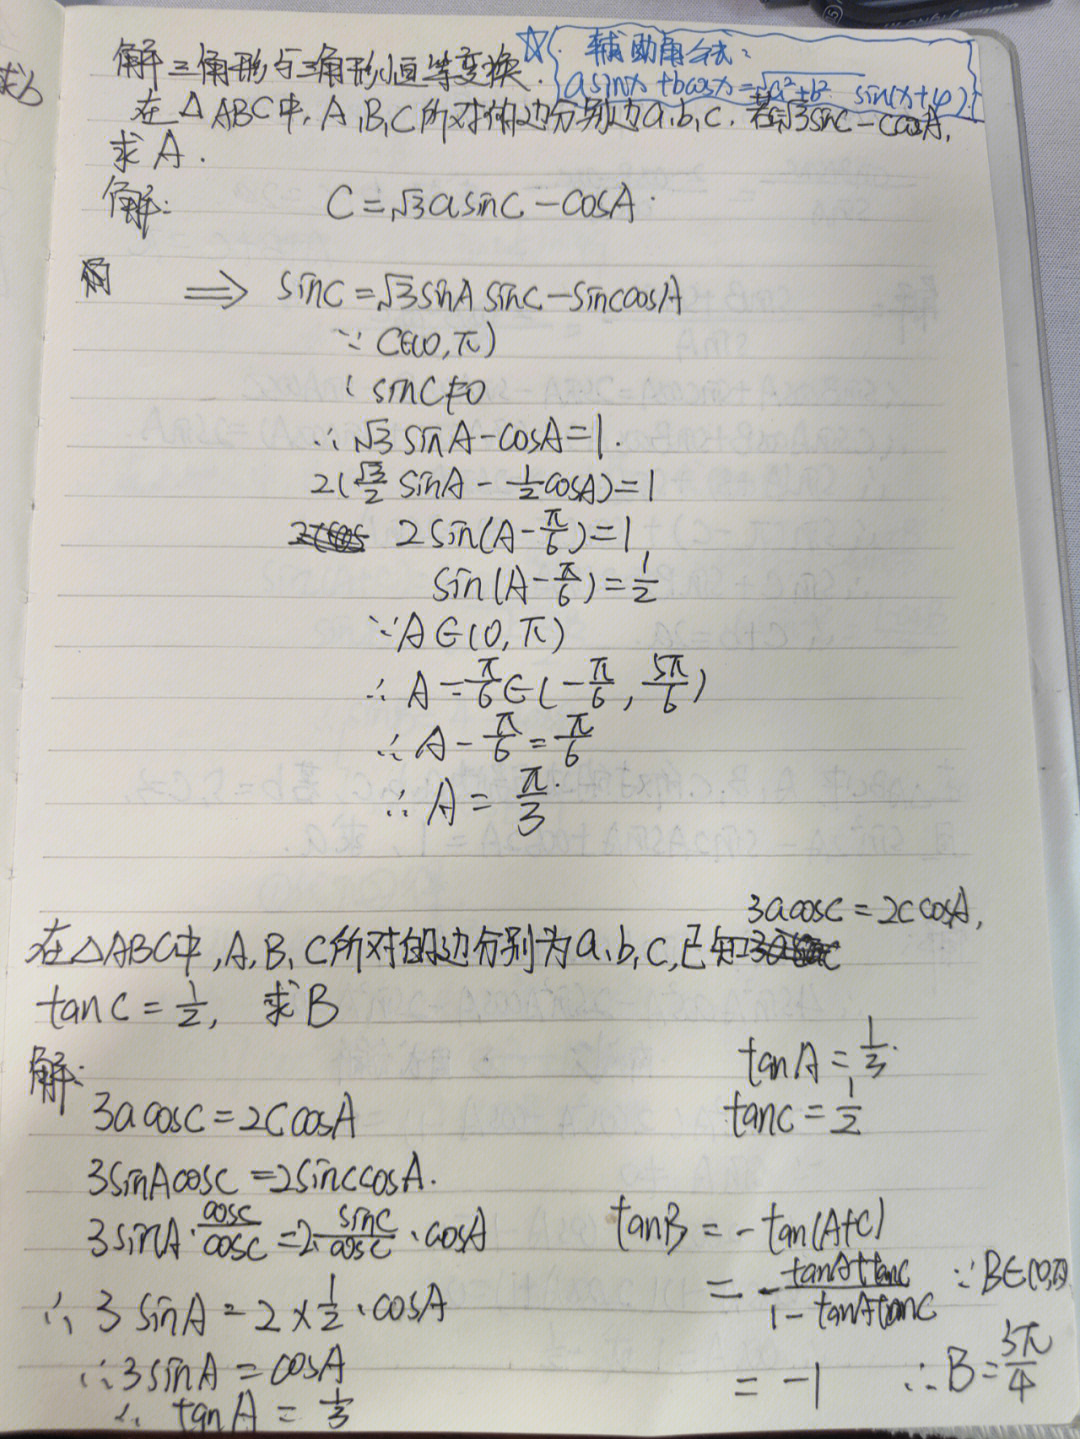 求b
解三角形与三角形恒等变换.
☆ 辅助角公式:
asinx+bcosx=√a²+b² sin(x+φ)
在△ABC中,A,B,C所对的边分别为a,b,c.若c=√3sinC-cosA,
求A.
解:
C=√3asinC-cosA.
⇒ sinC=√3sinA sinC-sinCcosA
∵ C∈(0,π)
∴ sinC≠0
∴√3sinA-cosA=1.
2(√3/2 sinA-1/2cosA)=1
2sin(A-π/6)=1
sin(A-π/6)=1/2
∵A∈(0,π)
∴A-π/6∈(-π/6,5π/6)
∴A-π/6=π/6
∴A=π/3.
3acosC=2ccosA,
在△ABC中,A,B,C所对的边分别为a,b,c,已知
tanC=1/2, 求B
解:
3acosC=2CcosA
3sinAcosC=2sinCcosA.
3sinA·cosC/cosC=2·sinC/cosC·cosA
∴3sinA=2×1/2·cosA
∴3sinA=cosA
∴ tanA=1/3
tanA=1/3.
tanC=1/2
tanB=-tan(A+C)
=-tanA+tanC/1-tanAtanC ∵B∈(0,π)
=-1 ∴B=3π/4